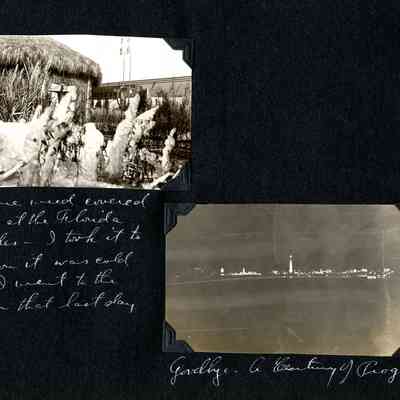 me weed covered
at the Florida
les - I took it to
it was cold
I went to the
that last day
Goodbye - A Century of Prog